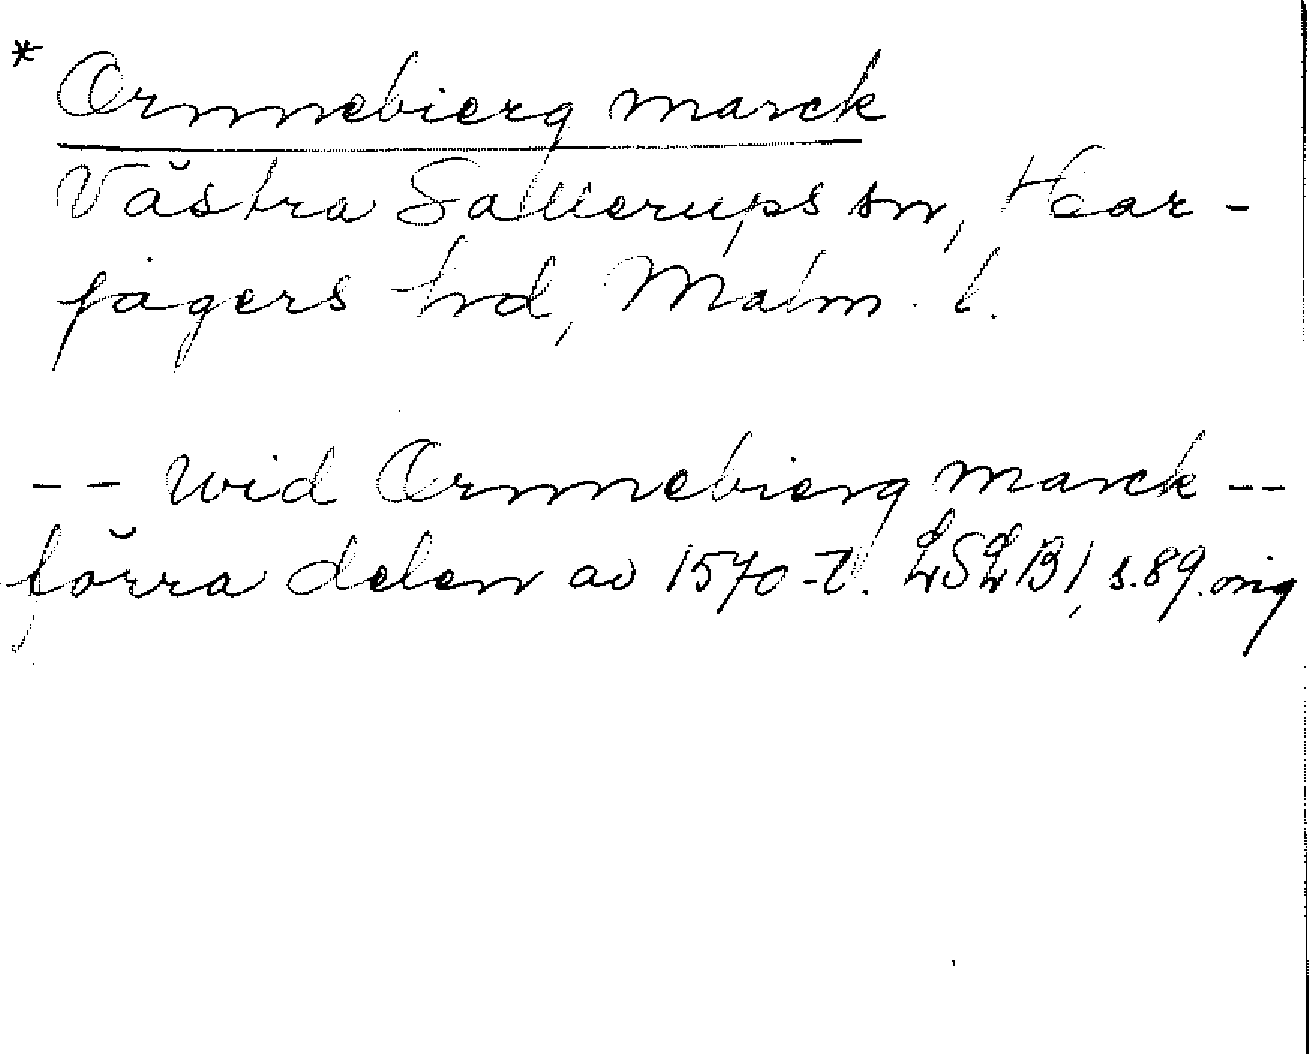 * Ormnebierg marck
Västra Sallerups sn, Har-
jagers hd, Malm. l.
-- wid Ormnebierg marck --
förra delen av 1570-t. LSLB1, s.89. orig